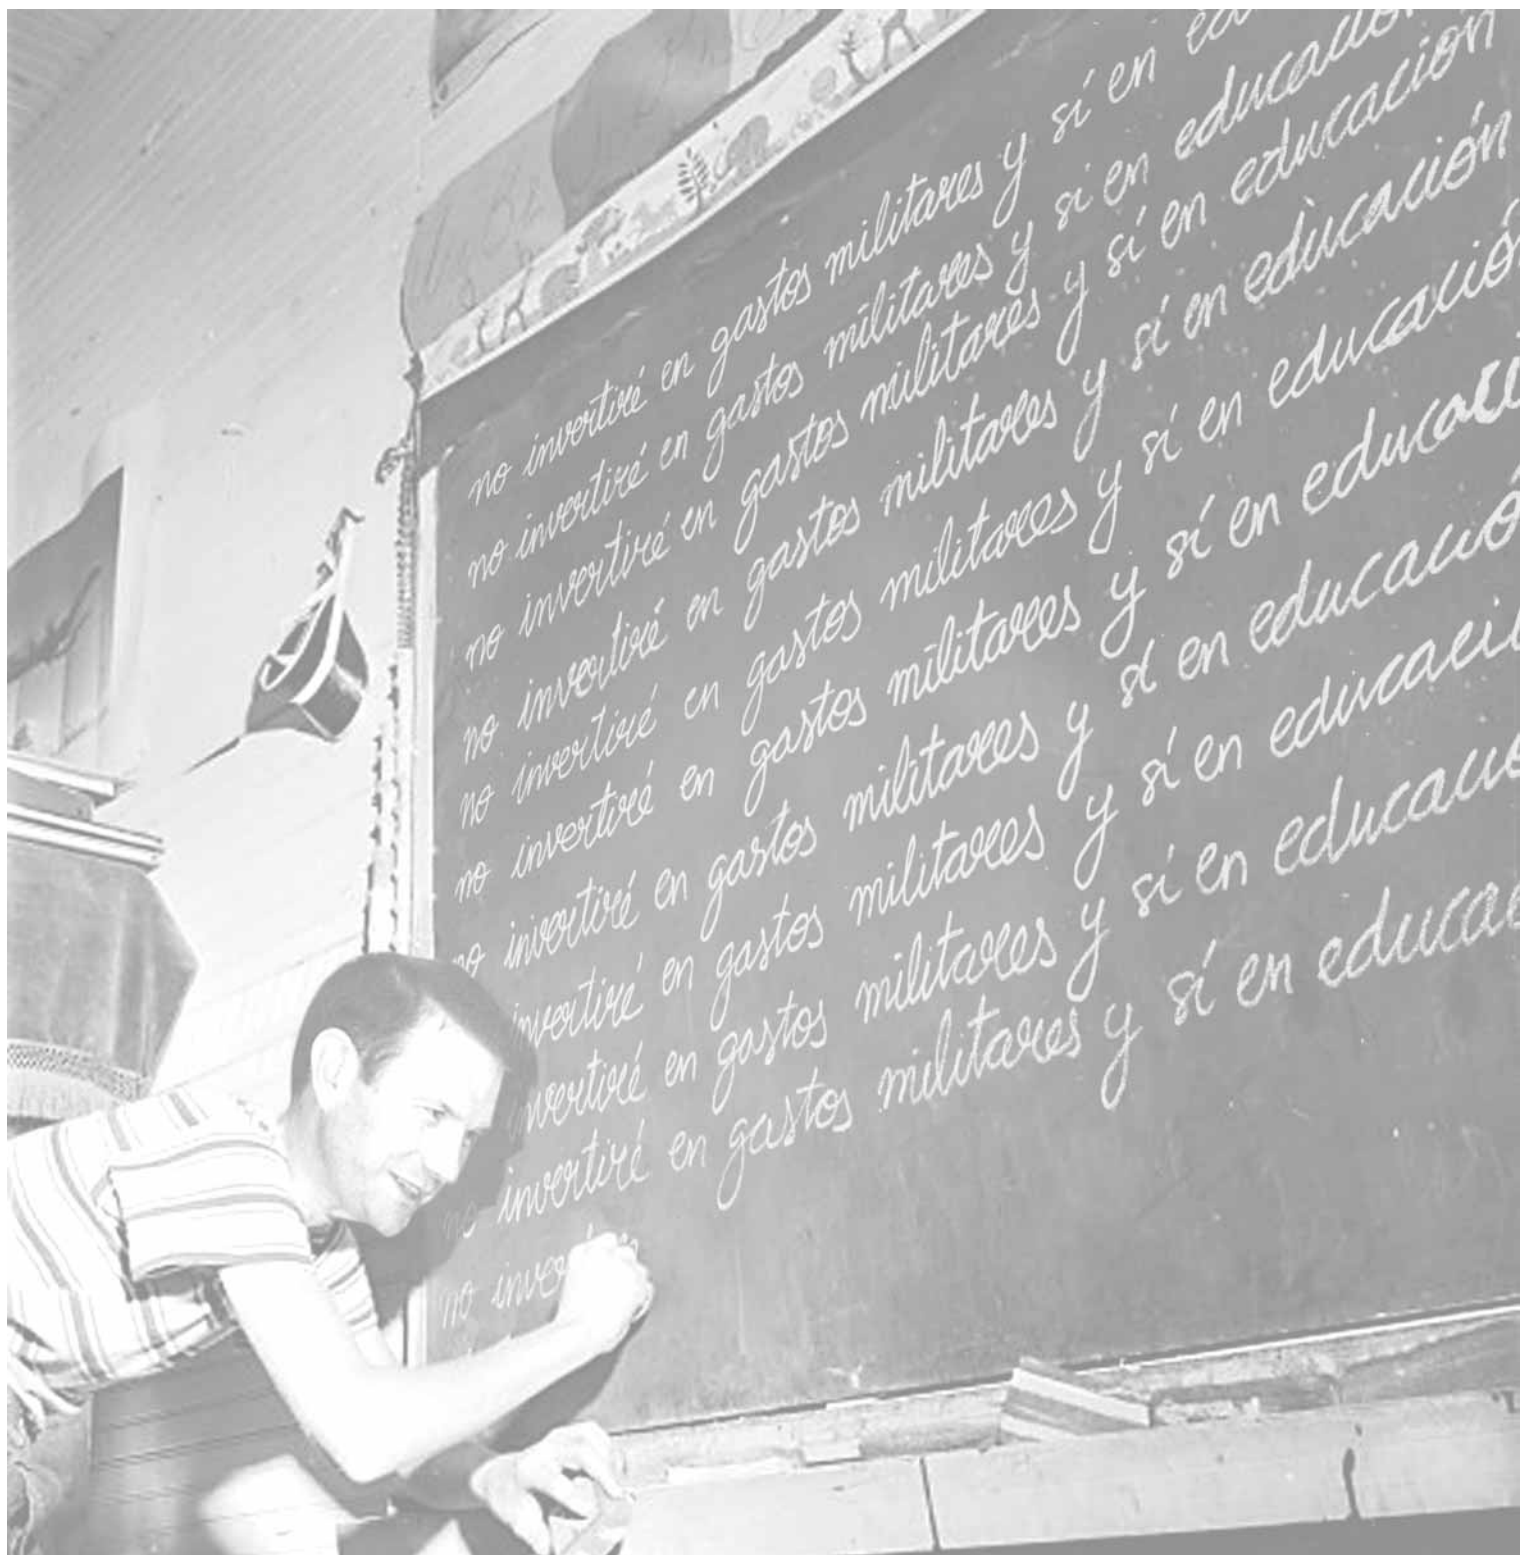 no invertiré en gastos militares y sí en
no invertiré en gastos militares y sí en educación
no invertiré en gastos militares y sí en educación
no invertiré en gastos militares y sí en educación
no invertiré en gastos militares y sí en educación
no invertiré en gastos militares y sí en educaci
no invertiré en gastos militares y sí en educació
invertiré en gastos militares y sí en educaci
invertiré en gastos militares y sí en educació
no invertiré en gastos militares y sí en educac
no inver